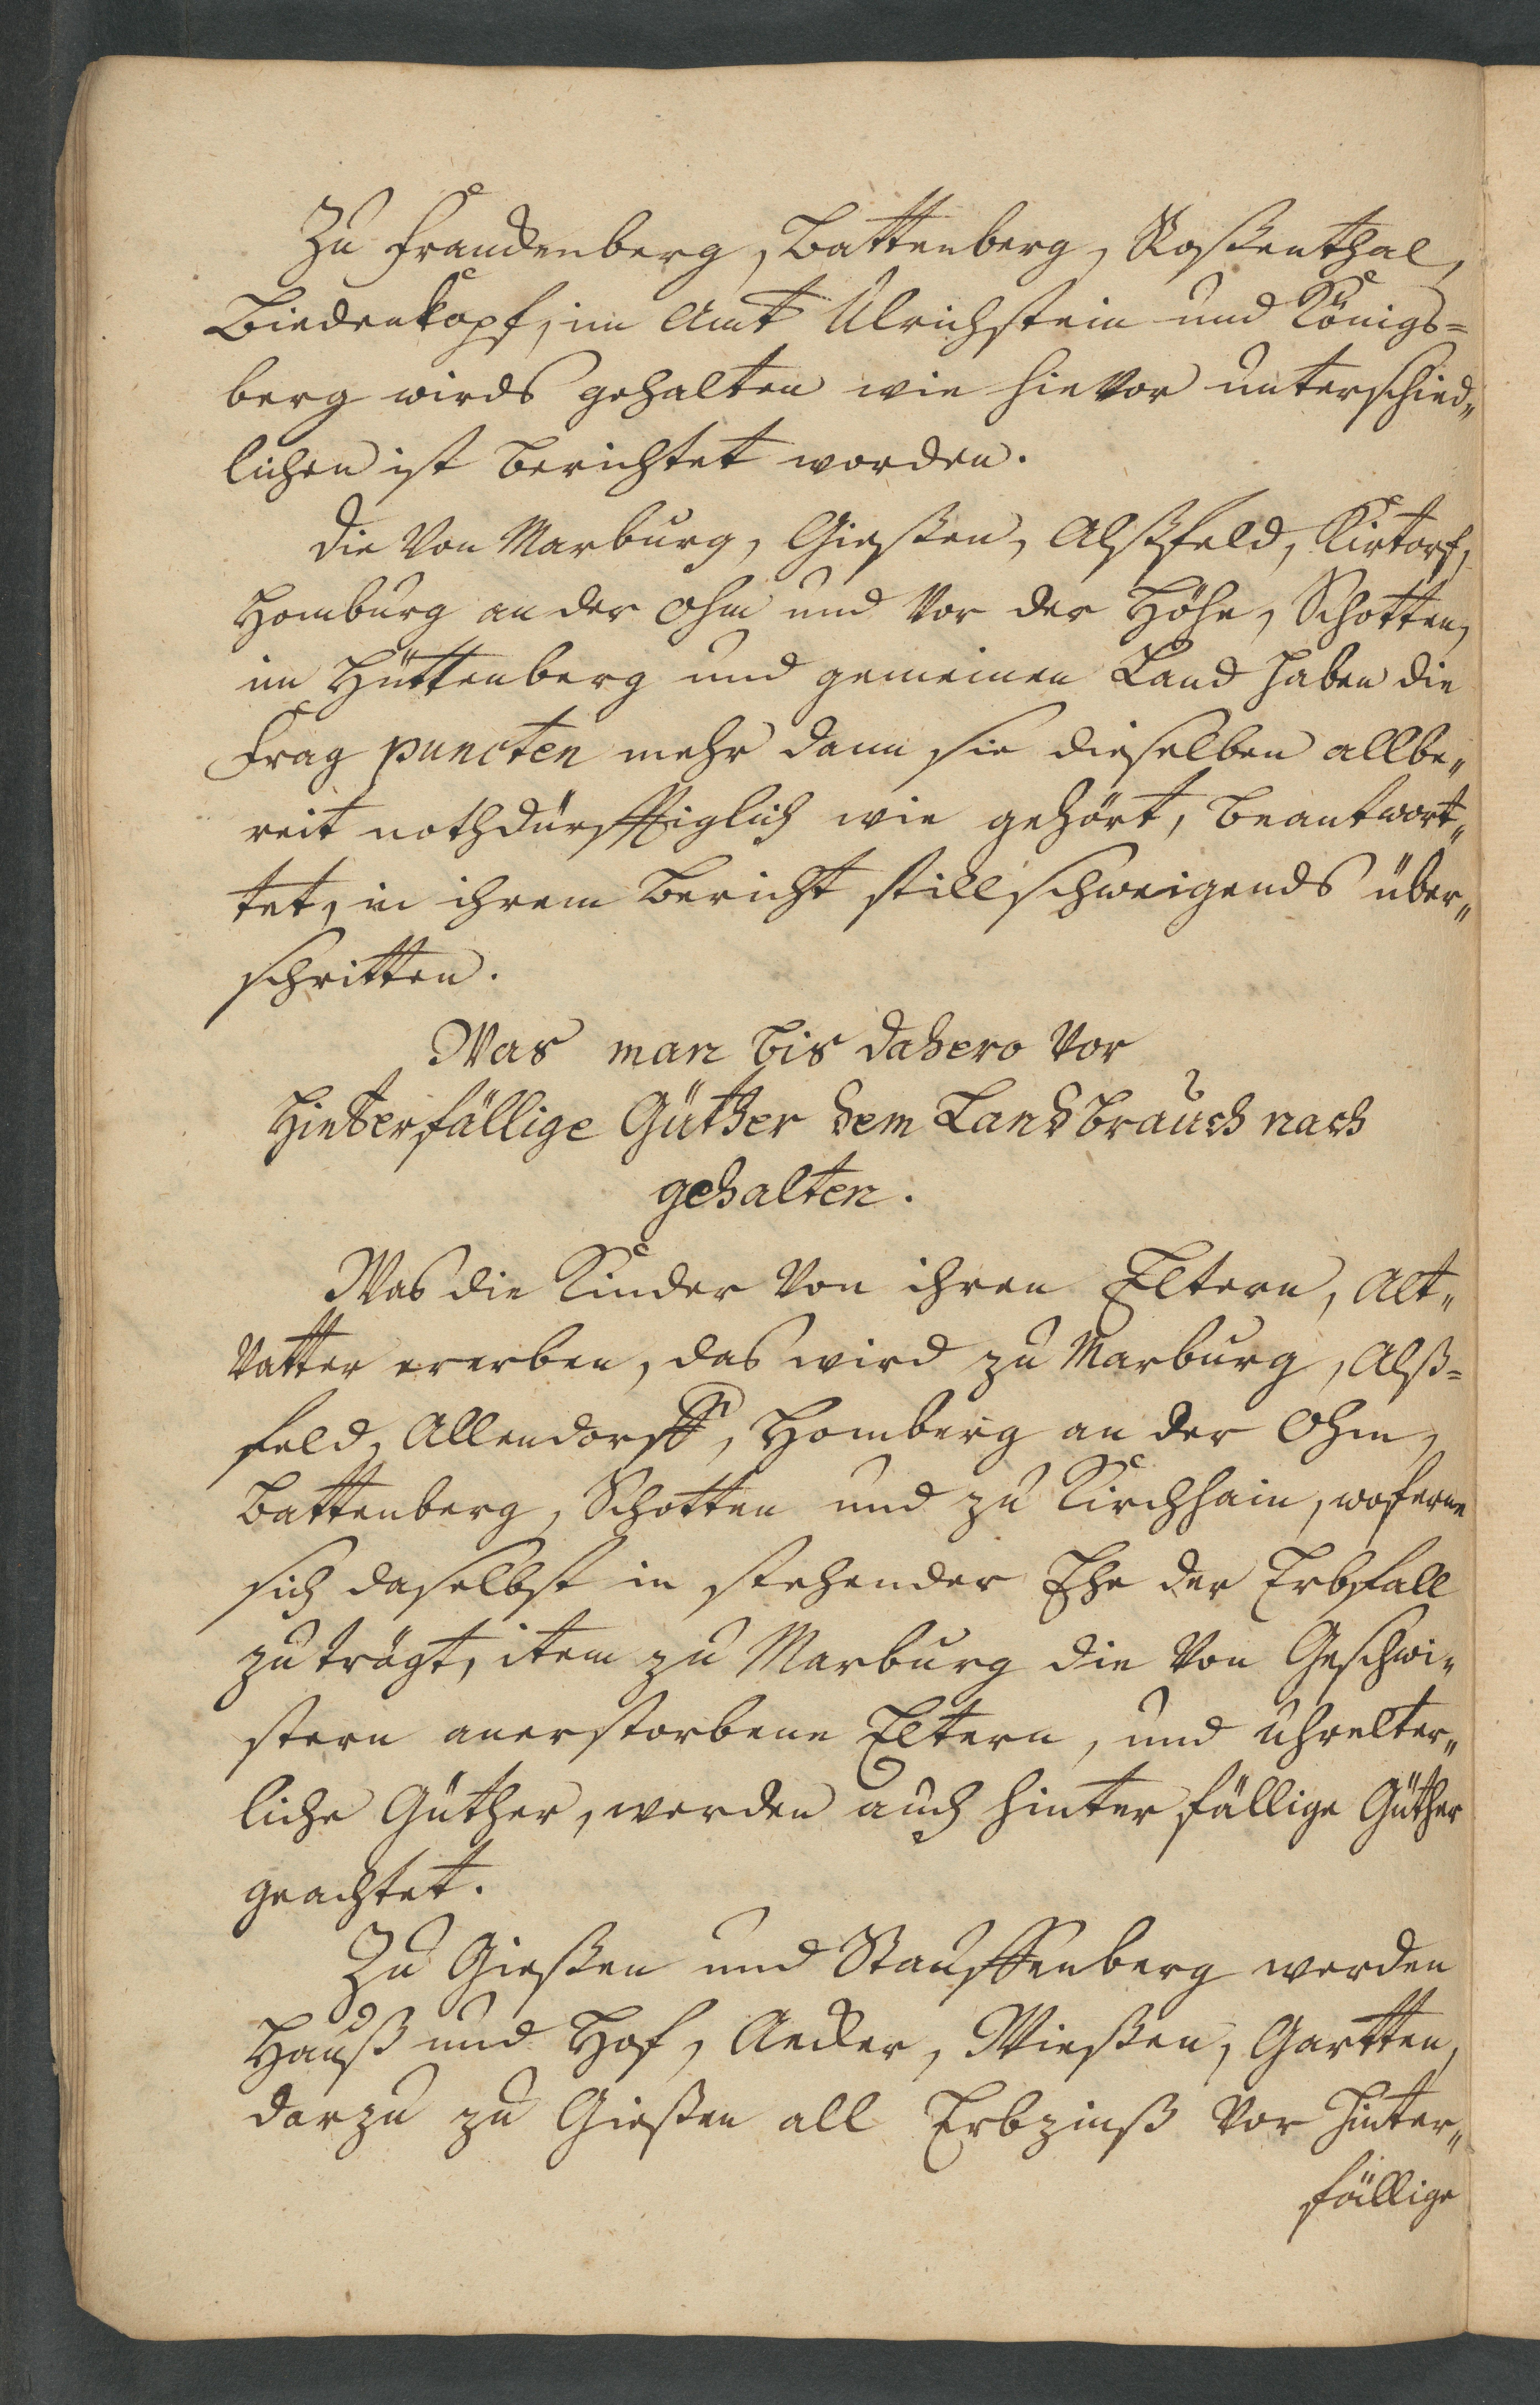 Zu Franckenberg, Battenberg, Roßenthal,
Biedenkopf, im Amt Ulrichstein und Königs=
berg wirds gehalten wie hievor unterschied„
lichen ist berichtet worden.
die von Marburg, Gießen, Alßfeld, Kirtorf,
Homburg an der Ohm und vor der Höhe, Schotten,
im Hüttenberg und gemeinen Land haben die
Frag puncten mehr dann sie dieselben allbe„
reit nothdürfftiglich wie gehört, beantwort„
tet, in ihrem Bericht stillschweigends über„
schritten.
Was man bis dahero vor
Hinterfällige Güther dem Landbrauch nach
gehalten.
Was die Kinder von ihren Eltern, Alt„
vatter ererben, das wird zu Marburg, Alß=
feld, Allendorff, Homberg an der Ohm,
Battenberg, Schotten und zu Kirchhain, woferne
sich daselbst in stehender Ehe der Erbfall
zuträgt, item zu Marburg die von Geschwi„
stern anerstorbene Eltern, und uhrelter„
liche Güther, werden auch hinterfällige Güther
geachtet.
Zu Gießen und Stauffenberg werden
Hauß und Hof, Aecker, Wießen, Gartten,
darzu zu Gießen all Erbzinß vor hinter„
fällige